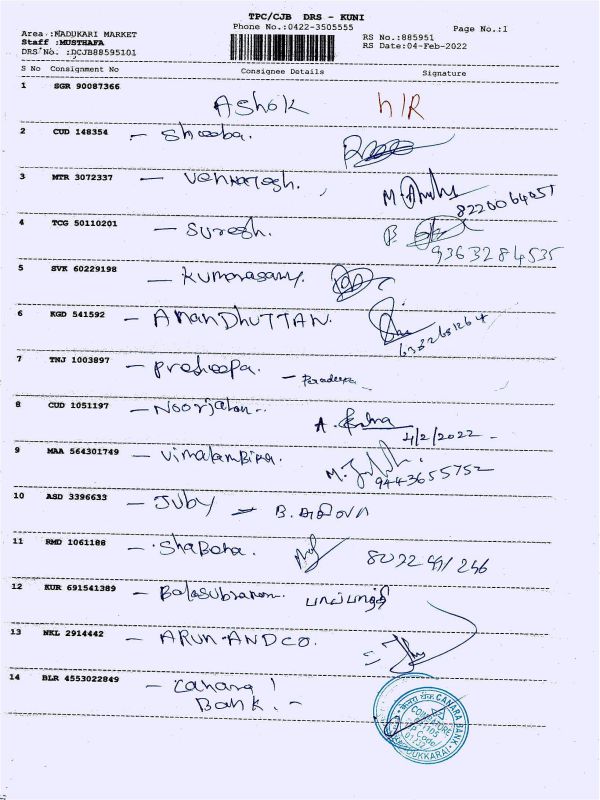 TPC/CJB DRS - KUNI
Phone No.:0422-3505555 Page No.:1
Area :MADUKARI MARKET
Staff :MUSTHAFA
DRS No. :DCJB88595101
RS No.:885951
RS Date:04-Feb-2022
S No Consignment No Consignee Details Signature
1 SGR 90087366 Ashok h/R
2 CUD 148354 - Sheeba.
3 MTR 3072337 - Venkatesh. 8220064051
4 TCG 50110201 - Suresh. 9363284535
5 SVK 60229198 - Kumarasamy.
6 KGD 541592 - AMANDHUTTAN.
7 TNJ 1003897 - Pradeepa. - Pradeepa
8 CUD 1051197 - Noorjahan. 4/2/2022 -
9 MAA 564301749 - Vimalambika. 9443655752
10 ASD 3396633 - Juby
11 RMD 1061188 - Shabana.
12 KUR 691541389 - Balasubramani.
13 NKL 2914442 - ARUN-ANDCO.
14 BLR 4553022849 - Canara
Bank. -
CANARA BANK
COIMBATORE
641105
MADUKKARAI